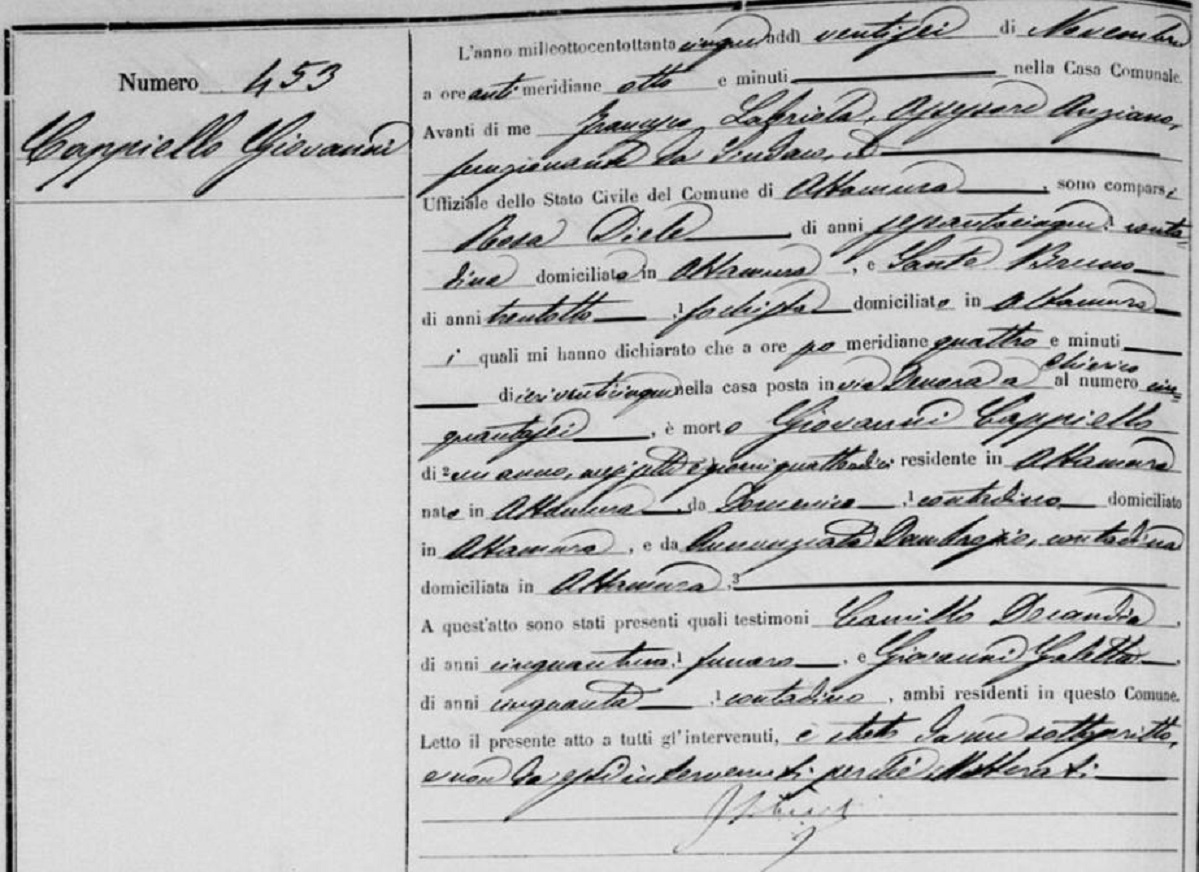 Numero 453
Cappiello Giovanni
L'anno milleottocentottanta cinque addì ventisei di Novembre
a ore anti meridiane otto e minuti nella Casa Comunale.
Avanti di me Francesco Labriola, Assessore Anziano,
funzionante da Sindaco,
Uffiziale dello Stato Civile del Comune di Altamura, sono comparsi
Rosa Diele, di anni sessantacinque conta
dina domiciliata in Altamura, e Santo Bruno
di anni trentotto, 1 fochista domiciliato in Altamura
i quali mi hanno dichiarato che a ore po meridiane quattro e minuti
di ieri venticinque nella casa posta in via a Chierico al numero cin=
quantasei, è morto Giovanni Cappiello
di 2 un anno, mesi sette e giorni quattordici residente in Altamura
nato in Altamura, da Domenico, 1 contadino, domiciliato
in Altamura, e da Annunziata Dambrosio, contadina
domiciliata in Altamura, 3
A quest'atto sono stati presenti quali testimoni Camillo Decandia,
di anni cinquantuno, 1 funaro, e Giovanni,
di anni cinquanta, 1 contadino, ambi residenti in questo Comune.
Letto il presente atto a tutti gl'intervenuti, è stato da me sottoscritto,
e non da essi intervenuti perchè illetterati